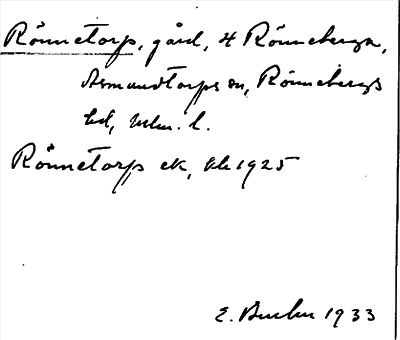 Rönnetorp, gård, 4 Rönneberga,
Asmundtorps sn, Rönnebergs
hd, Mlm. l.
Rönnetorp ek, 1925
E. 1933